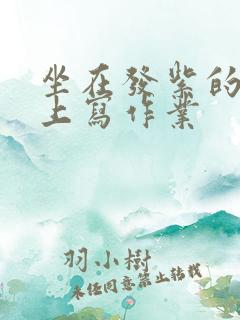 坐在發紫的
上寫作業
羽小樹
未經同意禁止轉載